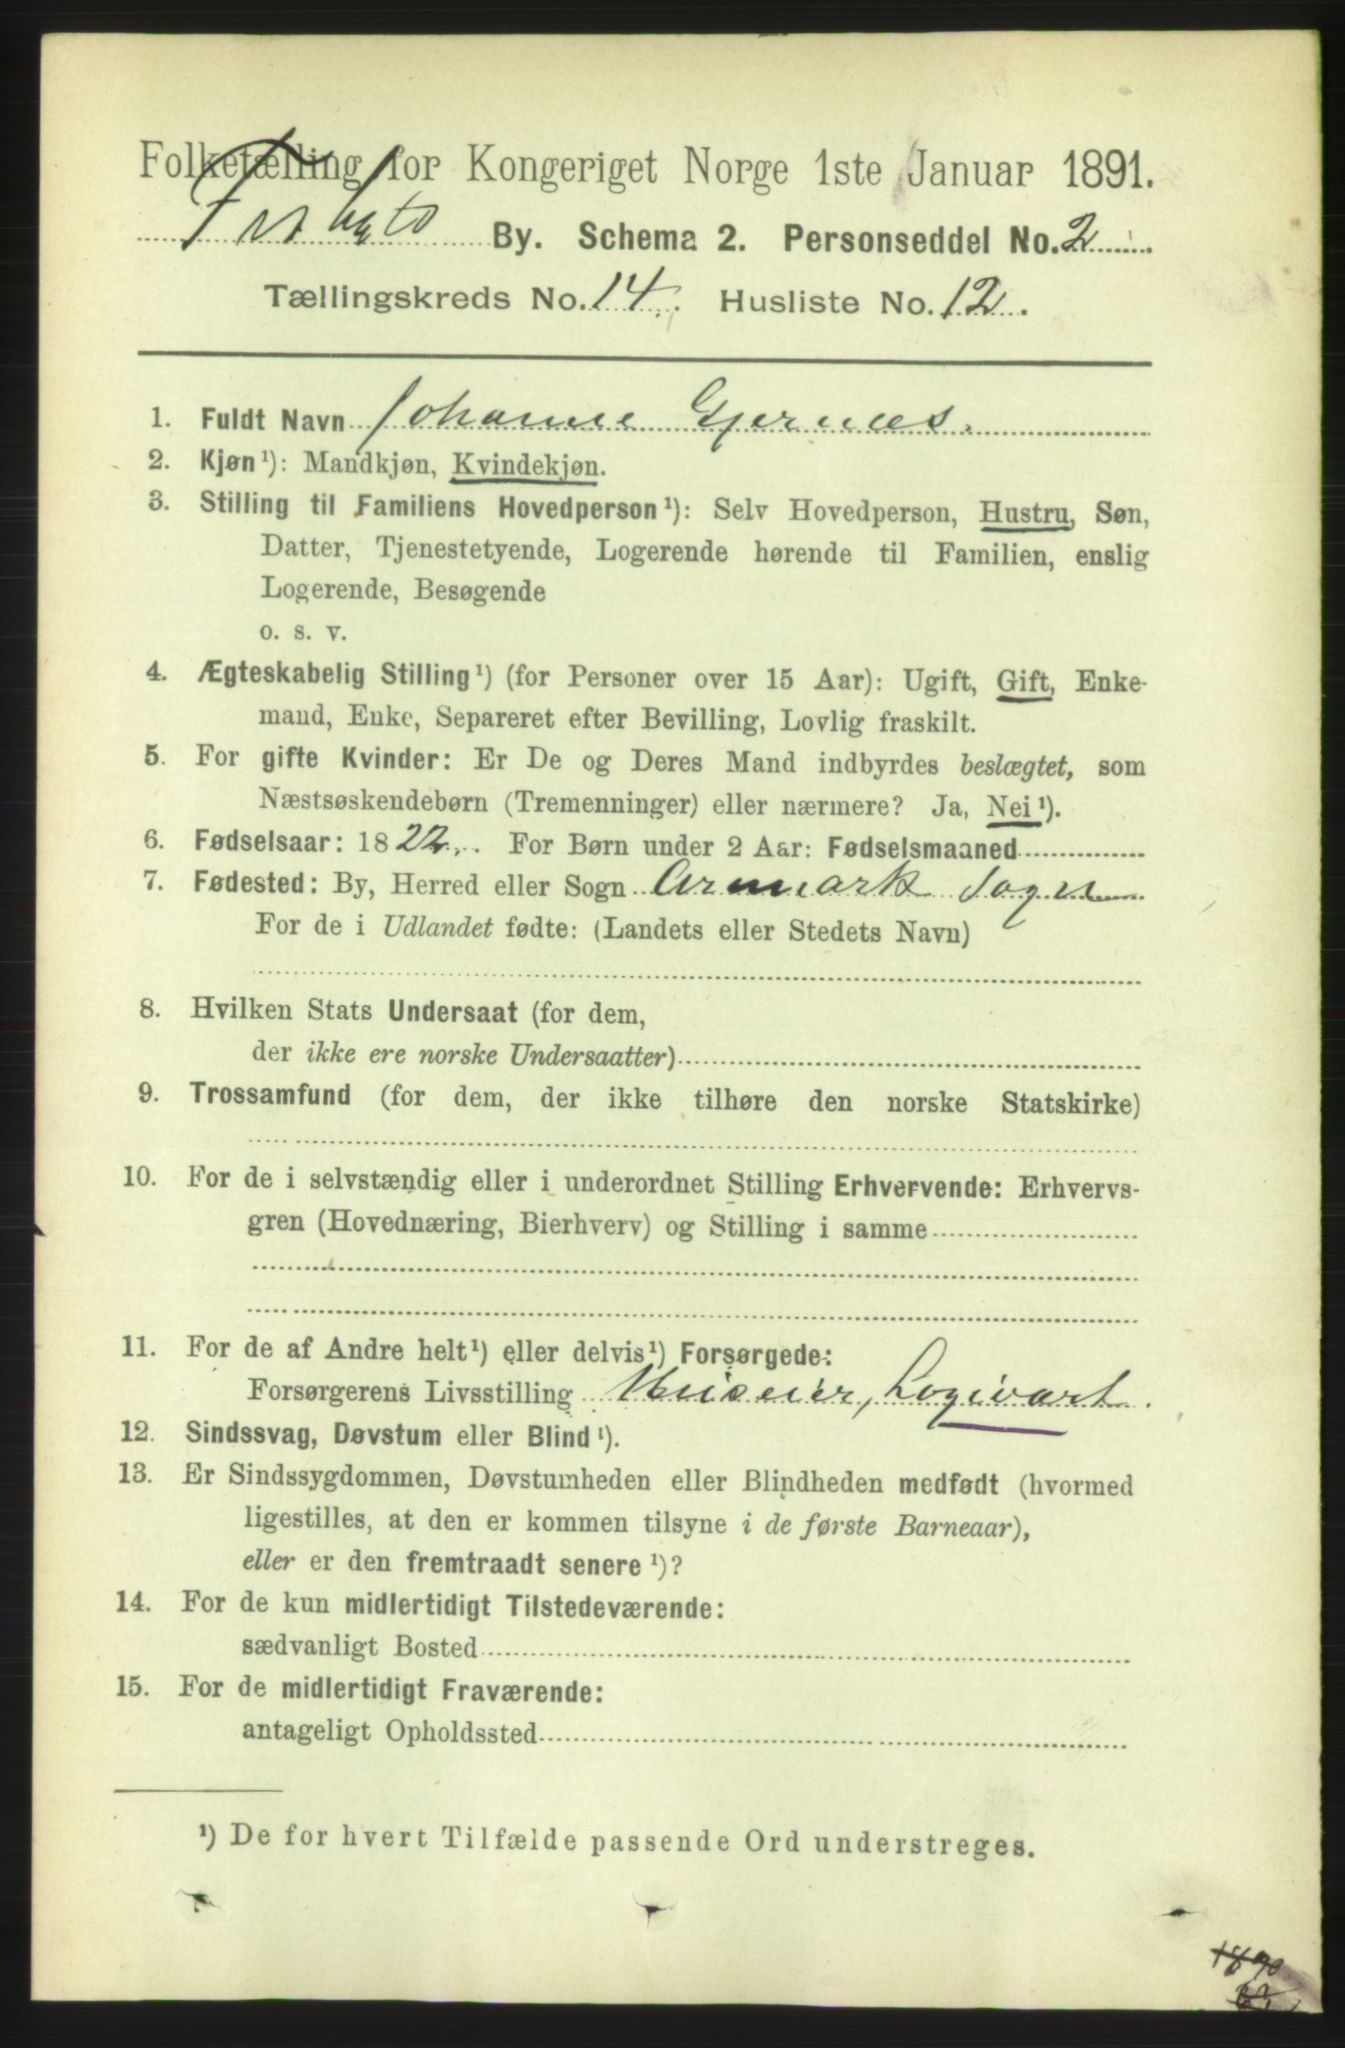 Folketælling for Kongeriget Norge 1ste Januar 1891.
By. Schema 2. Personseddel No. 2
Tællingskreds No. 14. Husliste No. 12.
1. Fuldt Navn Johanne Gjernæs.
2. Kjøn ¹): Mandkjøn, Kvindekjøn.
3. Stilling til Familiens Hovedperson ¹): Selv Hovedperson, Hustru, Søn,
Datter, Tjenestetyende, Logerende hørende til Familien, enslig
Logerende, Besøgende
o. s. v.
4. Ægteskabelig Stilling ¹) (for Personer over 15 Aar): Ugift, Gift, Enke-
mand, Enke, Separeret efter Bevilling, Lovlig fraskilt.
5. For gifte Kvinder: Er De og Deres Mand indbyrdes beslægtet, som
Næstsøskendebørn (Tremenninger) eller nærmere? Ja, Nei ¹).
6. Fødselsaar: 1822. For Børn under 2 Aar: Fødselsmaaned
7. Fødested: By, Herred eller Sogn Aremark Sogn
For de i Udlandet fødte: (Landets eller Stedets Navn)
8. Hvilken Stats Undersaat (for dem,
der ikke ere norske Undersaatter)
9. Trossamfund (for dem, der ikke tilhøre den norske Statskirke)
10. For de i selvstændig eller i underordnet Stilling Erhvervende: Erhvervs-
gren (Hovednæring, Bierhverv) og Stilling i samme
11. For de af Andre helt ¹) eller delvis ¹) Forsørgede:
Forsørgerens Livsstilling Huseier, Logivært.
12. Sindssvag, Døvstum eller Blind ¹).
13. Er Sindssygdommen, Døvstumheden eller Blindheden medfødt (hvormed
ligestilles, at den er kommen tilsyne i de første Barneaar),
eller er den fremtraadt senere ¹)?
14. For de kun midlertidigt Tilstedeværende:
sædvanligt Bosted
15. For de midlertidigt Fraværende:
antageligt Opholdssted
¹) De for hvert Tilfælde passende Ord understreges.
1890